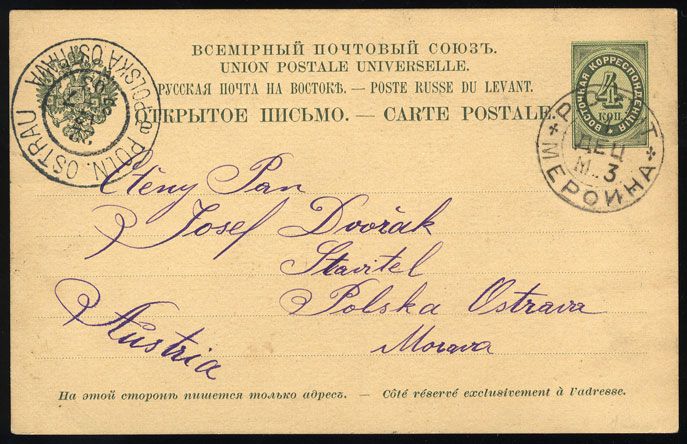 ВСЕМІРНЫЙ ПОЧТОВЫЙ СОЮЗЪ.
UNION POSTALE UNIVERSELLE.
РУССКАЯ ПОЧТА НА ВОСТОКѢ. — POSTE RUSSE DU LEVANT.
ОТКРЫТОЕ ПИСЬМО. — CARTE POSTALE.
ВОСТОЧНАЯ КОРРЕСПОНДЕНЦІЯ
4
КОП.
POLN. OSTRAU
POLSKA OSTRAVA
ДЕЦ
М. 3
МЕРСИНА
Ctěny Pan
Josef Dvořak
Stavitel
Polska Ostrava
Morava
Austria
На этой сторонѣ пишется только адресъ. — Côté réservé exclusivement à l'adresse.